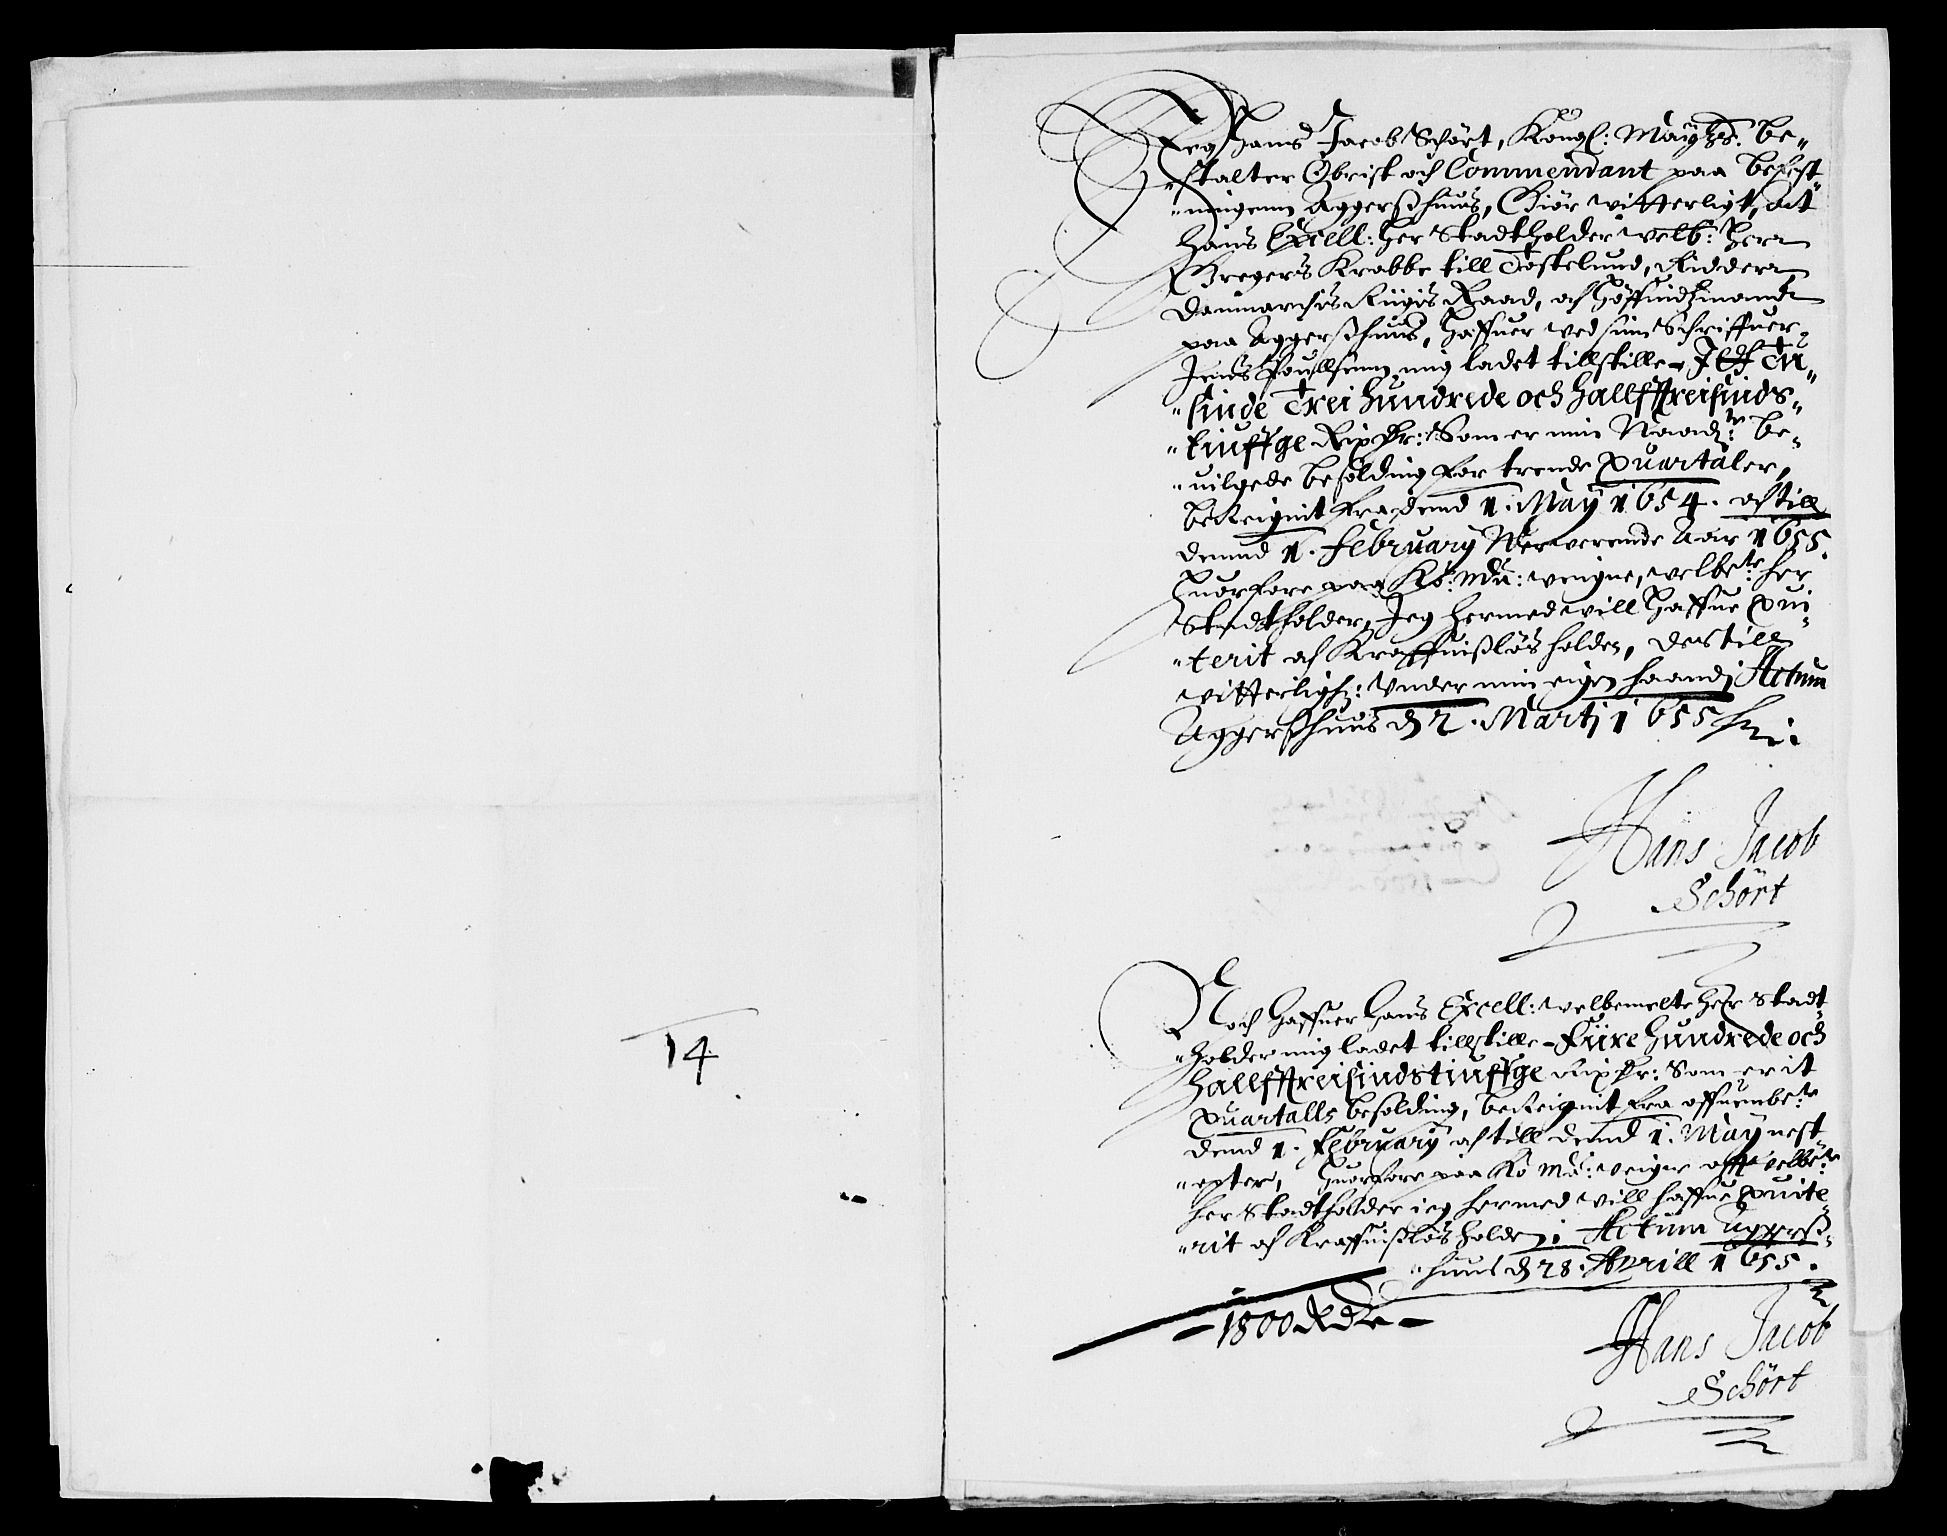 14
Jeg Hans Jacob Schört, Kongl: Mayts: be-
stalter Obrist och Commendant paa befest-
ningenn Aggershuus, Giör witterligt, at
Hans Excell: Her Stadtholder welb: Herr
Gregers Krabbe till Tostelund, Ridder,
Danmarchis Riigis Raad, och Höffuidzmand
paa Aggershuus, Haffuer ved sin Schriffuer
Jens Poullsenn mig ladet tillstille Tu-
sinde Trei hundrede och halfftreisinds-
tiuffge Rix dr: Som er min Naadr: be-
uilgede besolding for trende Quartaler,
bereignit fra dend 1. May 1654. och till
dennd 1. February Nerwerende Aar 1655.
Huorfore paa Kö: Ma: weigne, welbete her
Stadtholder, Jeg hermed will haffue Qui-
terit och Kraffuislös holden, Des till
witterlighd: Vnder min eigen haand, Actum
Aggershuus d 2. Martj 1655
Hans Jacob
Schört
Noch Haffuer Hans Excell: welbemelte Her Stadt-
holder mig ladet tillstille Fiire hundrede och
halfftreisindstiuffge Rix dr: Som er it
Quartalls besolding, bereignit fra offuenbete
dend 1. February och till dend 1. May nest
epter, Huorfore paa Kö Ma: weigne welbete
her Stadtholder ieg hermed will haffue Quite-
rit och Kraffuislös holden, Actum Aggers-
huus d 28. Aprill 1655.
1800 Rdr
Hans Jacob
Schört